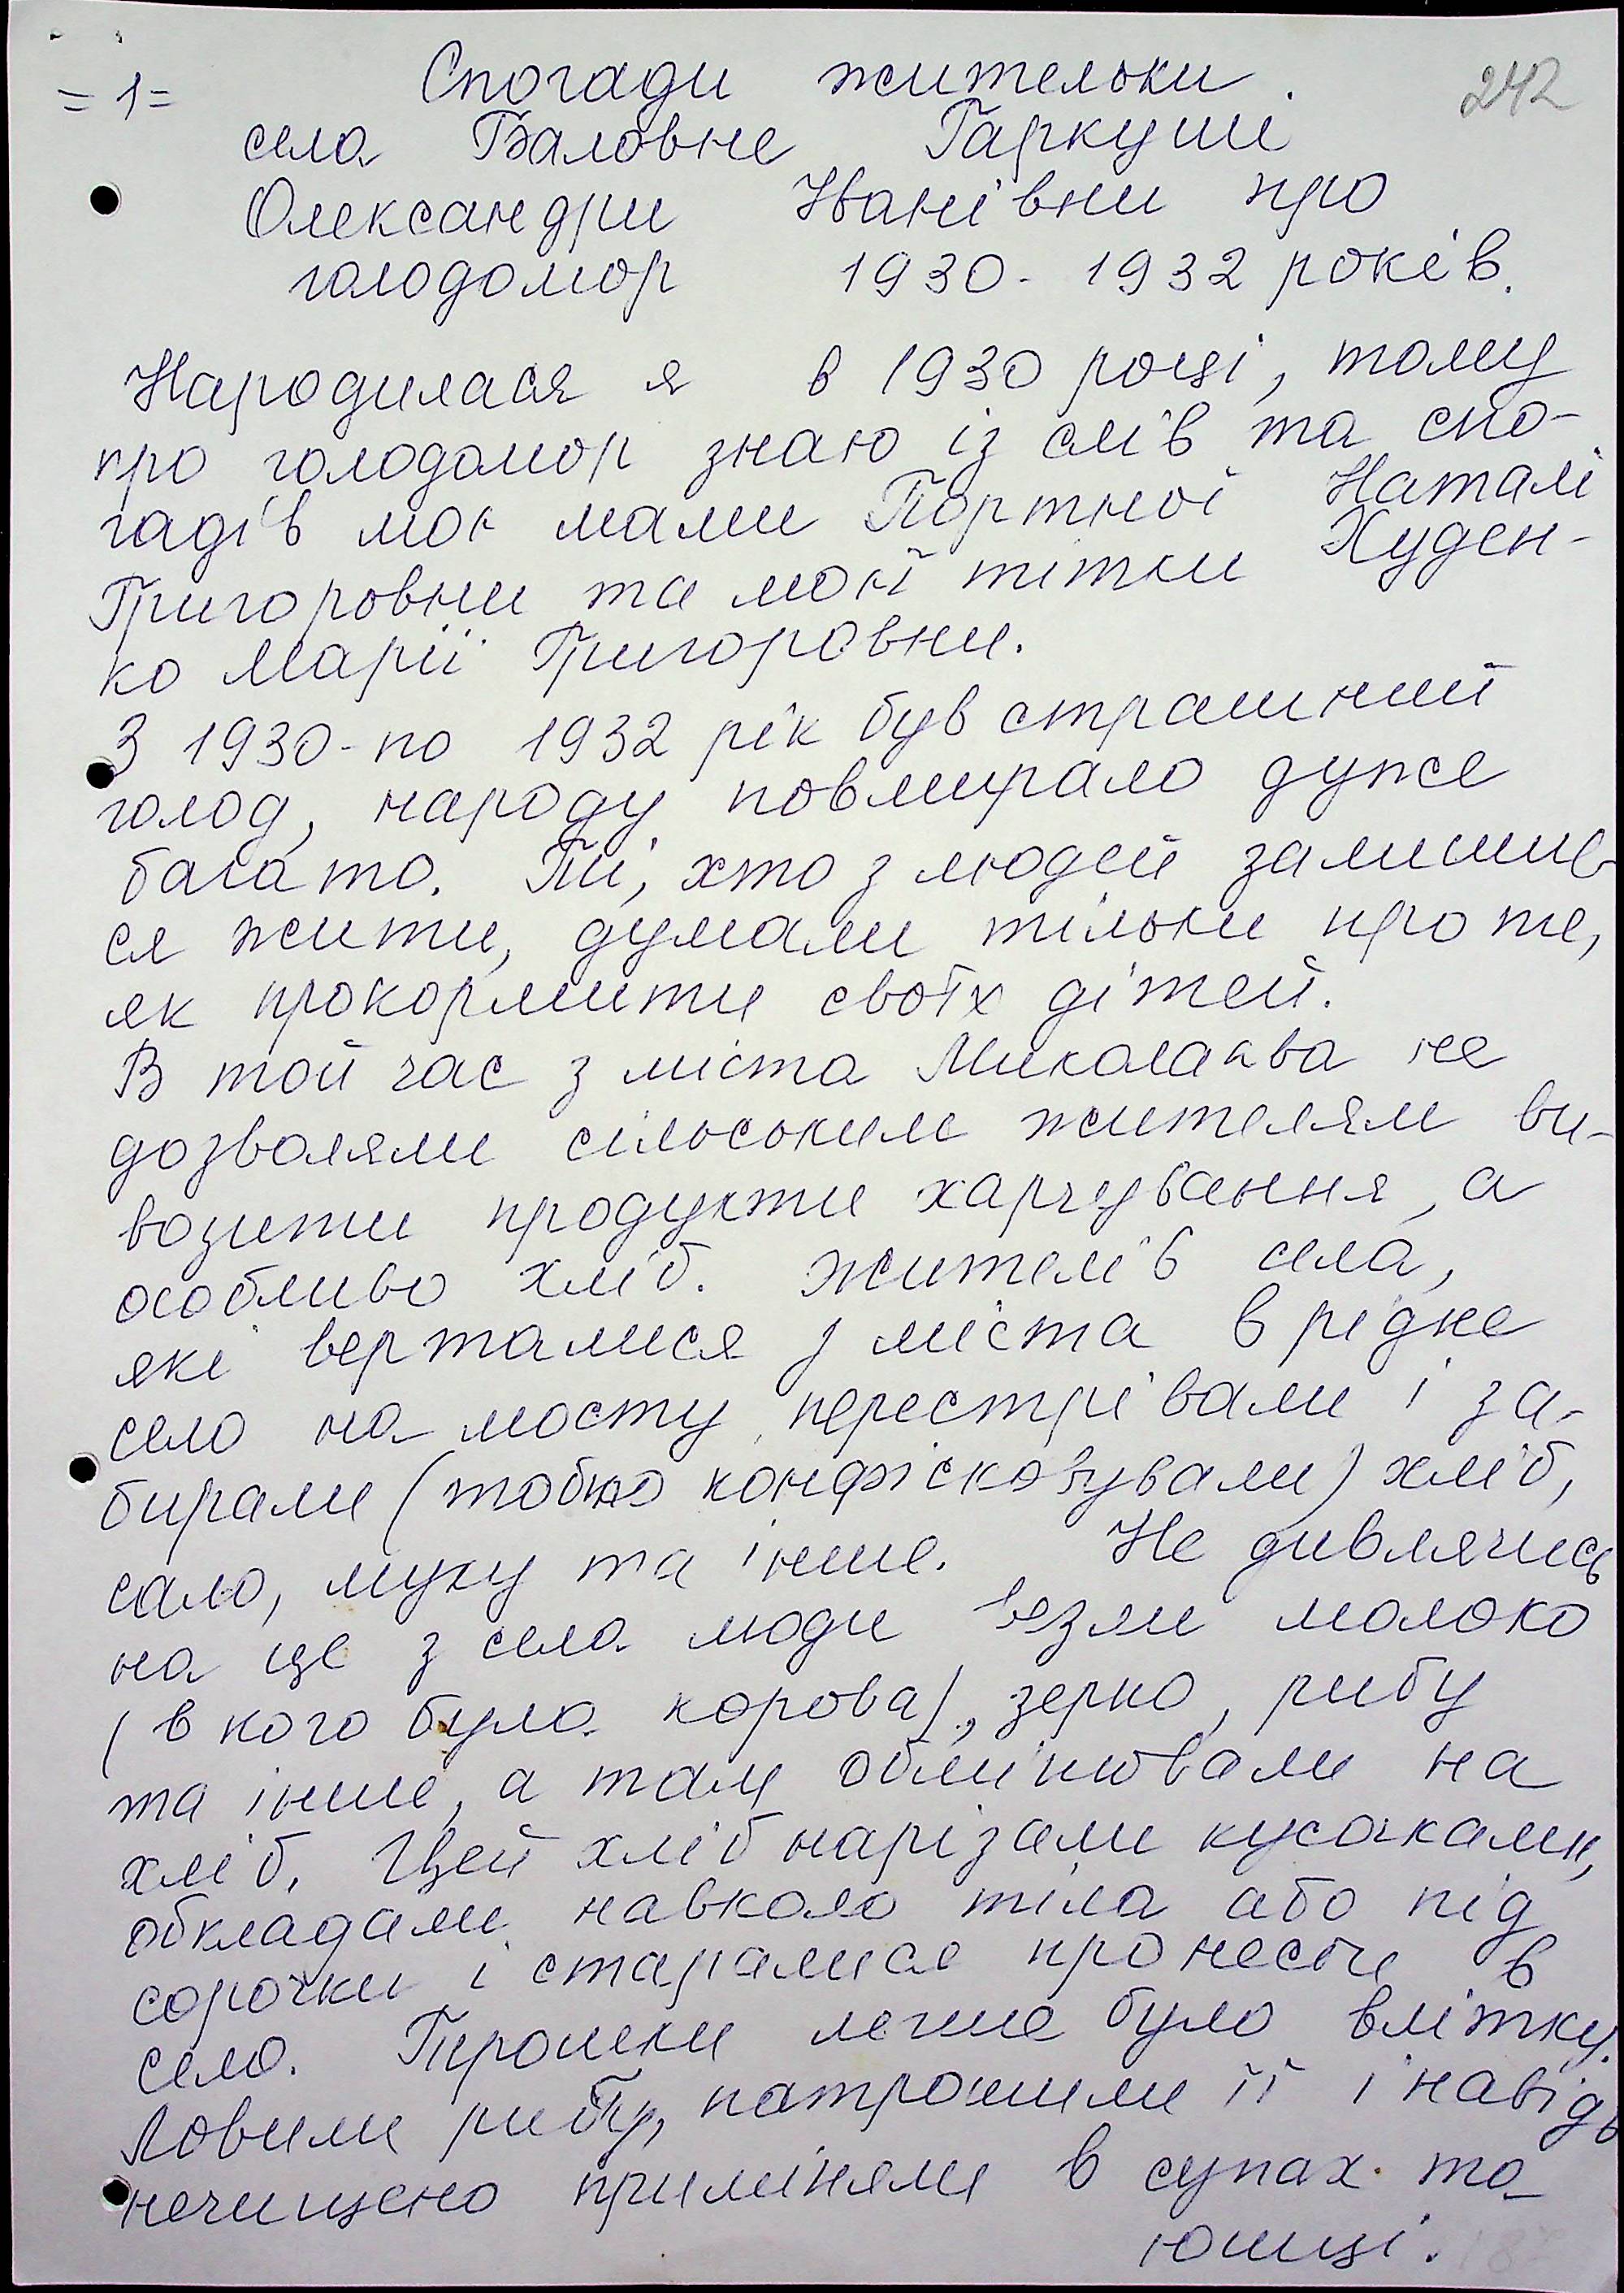 = 1 =
242
Спогади жительки
села Баловне Гаркуші
Олександри Іванівни про
голодомор 1930 - 1932 років.
Народилася я в 1930 році, тому
про голодомор знаю із слів та спо-
гадів моє мами Портної Наталі
Григоровни та моєї тітки Худен-
ко Марії Григоровни.
З 1930 - по 1932 рік був страшний
голод, народу повмирало дуже
багато. Ті, хто з людей залишив-
ся жити, думали тільки про те,
як прокормити своїх дітей.
В той час з міста Миколаєва не
дозволяли сільським жителям ви-
возити продукти харчування, а
особливо хліб. Жителів села,
які верталися з міста в рідне
село на мосту перестрівали і за-
бирали (тобто конфісковували) хліб,
сало, муку та інше. Не дивлячись
на це з села люди везли молоко
(в кого була корова), зерно, рибу
та інше, а там обмінювали на
хліб. Цей хліб нарізали кусочками,
обкладали навколо тіла або під
сорочки і старалися пронести в
село. Трошки легше було влітку.
Ловили рибу, патрошили її і навідь
нечищено приміняли в супах та
юшці.